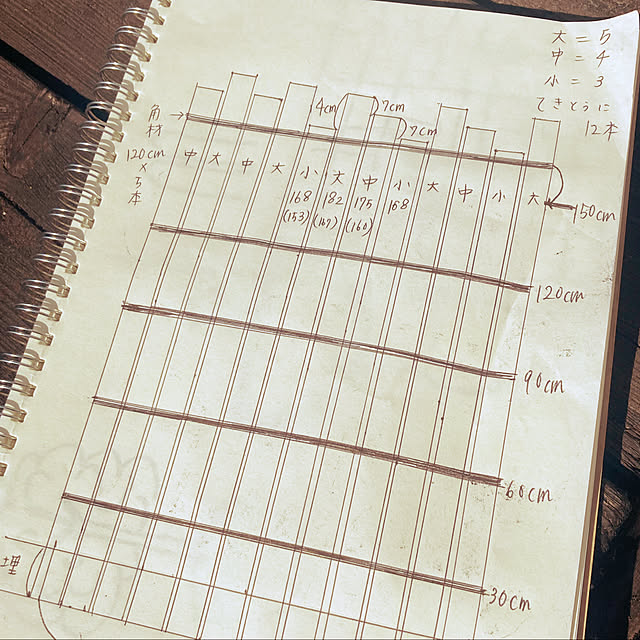 大 = 5
中 = 4
小 = 3
てきとうに
12本
角材 →
120cm
×
5本
4cm
7cm
7cm
中 大 中 大 小 大 中 小 大 中 小 大
168 182 175 168
(153) (167) (160)
150cm
120cm
90cm
60cm
30cm
埋